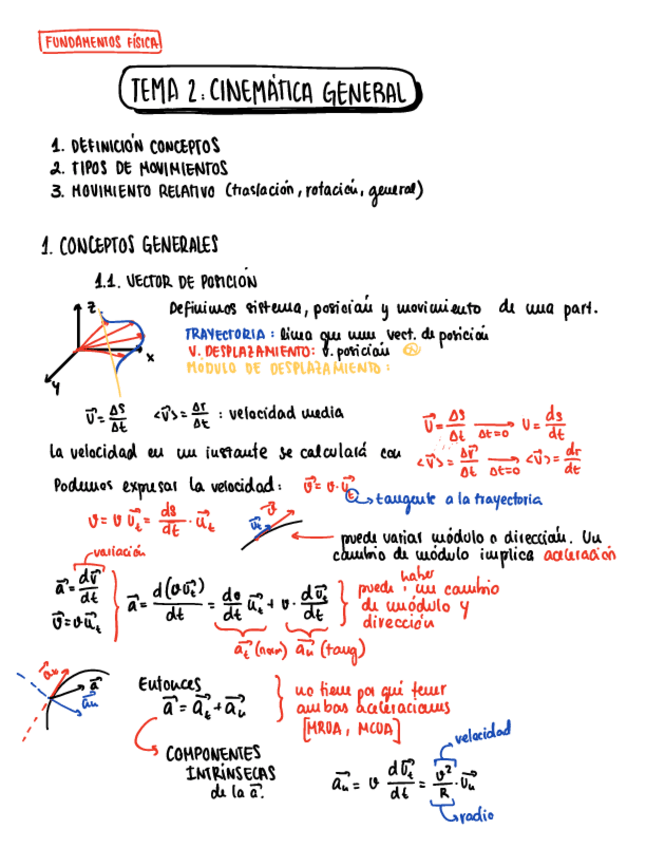 FUNDAMENTOS FÍSICA
TEMA 2: CINEMÁTICA GENERAL
1. DEFINICIÓN CONCEPTOS
2. TIPOS DE MOVIMIENTOS
3. MOVIMIENTO RELATIVO (traslación, rotación, general)
1. CONCEPTOS GENERALES
1.1. VECTOR DE POSICIÓN
z
x
y
Definimos sistema, posición y movimiento de una part.
TRAYECTORIA: línea que une vect. de posición
V. DESPLAZAMIENTO: v. posición
MÓDULO DE DESPLAZAMIENTO:
v⃗ = Δs/Δt <v⃗> = Δr/Δt : velocidad media
v⃗ = Δs/Δt Δt=0 → v = ds/dt
La velocidad en un instante se calculará con
<v⃗> = Δr⃗/Δt Δt=0 → <v⃗> = dr/dt
Podemos expresar la velocidad: v⃗ = v · u⃗t
tangente a la trayectoria
v = v u⃗t = ds/dt · u⃗t
u⃗t v⃗
puede variar módulo o dirección. Un
cambio de módulo implica aceleración
variación
a⃗ = dv⃗/dt
v⃗ = v u⃗t
a⃗ = d(v u⃗t)/dt = dv/dt u⃗t + v · du⃗t/dt
puede haber un cambio
de módulo y
dirección
a⃗t (nom) a⃗n (tang)
a⃗n
a⃗
a⃗n
Entonces
a⃗ = a⃗t + a⃗n
no tiene por qué tener
ambas aceleraciones
[MROA, MCOA]
COMPONENTES
INTRÍNSECAS
de la a⃗.
velocidad
a⃗n = v du⃗t/dt = v²/R · u⃗n
radio